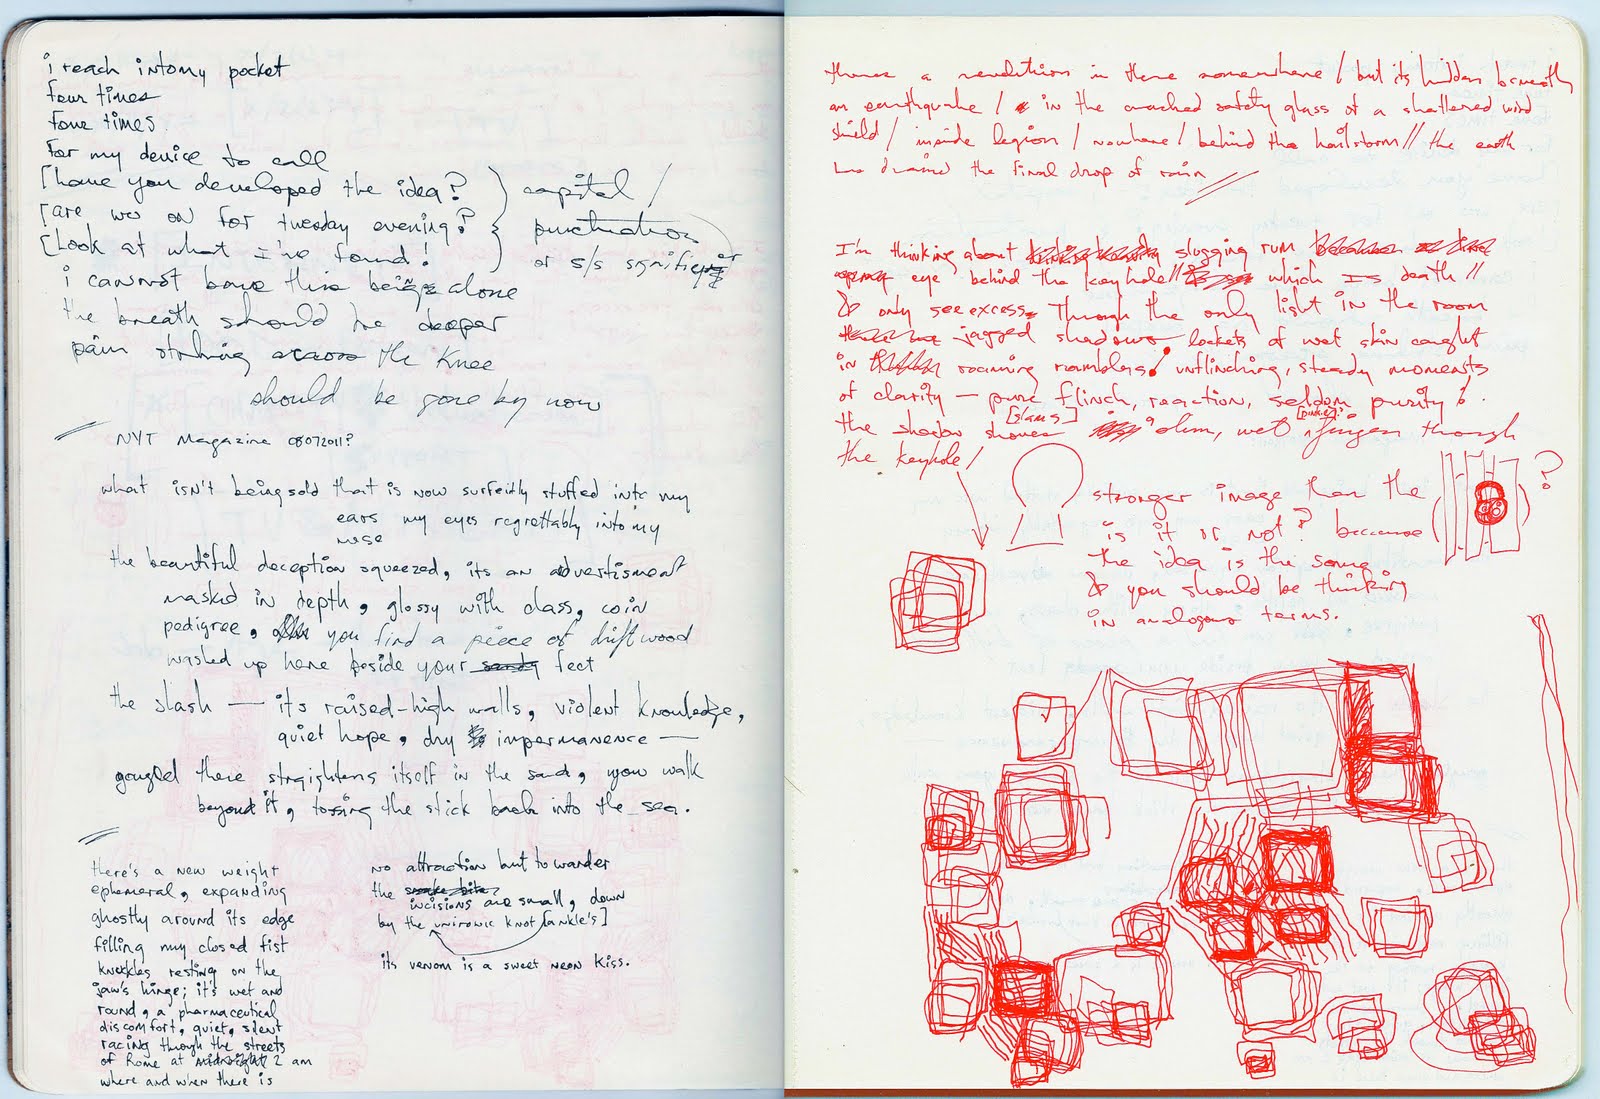 i reach into my pocket
four times
four times
for my device to call
[have you developed the idea?
[are we on for tuesday evening?
[Look at what I've found!
capital /
punctuation
or s/s signifier
i cannot bare this being alone
the breath should be deeper
pain striking across the knee
should be gone by now
NYT Magazine 08072011?
what isn't being sold that is now surfeitly stuffed into my
ears my eyes regrettably into my
nose
the beautiful deception squeezed, its an advertisment
masked in depth, glossy with class, coin
pedigree, you find a piece of driftwood
washed up here beside your sandy feet
the slash — its raised-high walls, violent knowledge,
quiet hope, dry impermanence —
gouged there straightens itself in the sand, you walk
beyond it, tossing the stick back into the sea.
there's a new weight
ephemeral, expanding
ghostly around its edge
filling my closed fist
knuckles resting on the
jaw's hinge; it's wet and
round, a pharmaceutical
discomfort, quiet, silent
racing through the streets
of Rome at midnight 2 am
where and when there is
no attraction but to wander
the snake bite
incisions are small, down
by the knot [ankle's]
its venom is a sweet neon kiss.
theres a rendition in there somewhere / but its hidden beneath
an earthquake / in the cracked safety glass of a shattered wind
shield / inside legion / nowhere / behind the hailstorm // the earth
has drained the final drop of rain //
I'm thinking about slugging rum
eye behind the keyhole // which is death //
& only see excess. Through the only light in the room
jagged shadows lockets of wet skin caught
in roaming rambles! unflinching, steady moments
of clarity — pure flinch, reaction, seldom purity!
[slams] [pinkie]?
the shadow shoves slim, wet finger through
the keyhole /
stronger image than the ?
is it or not? because
the idea is the same
& you should be thinking
in analogous terms.